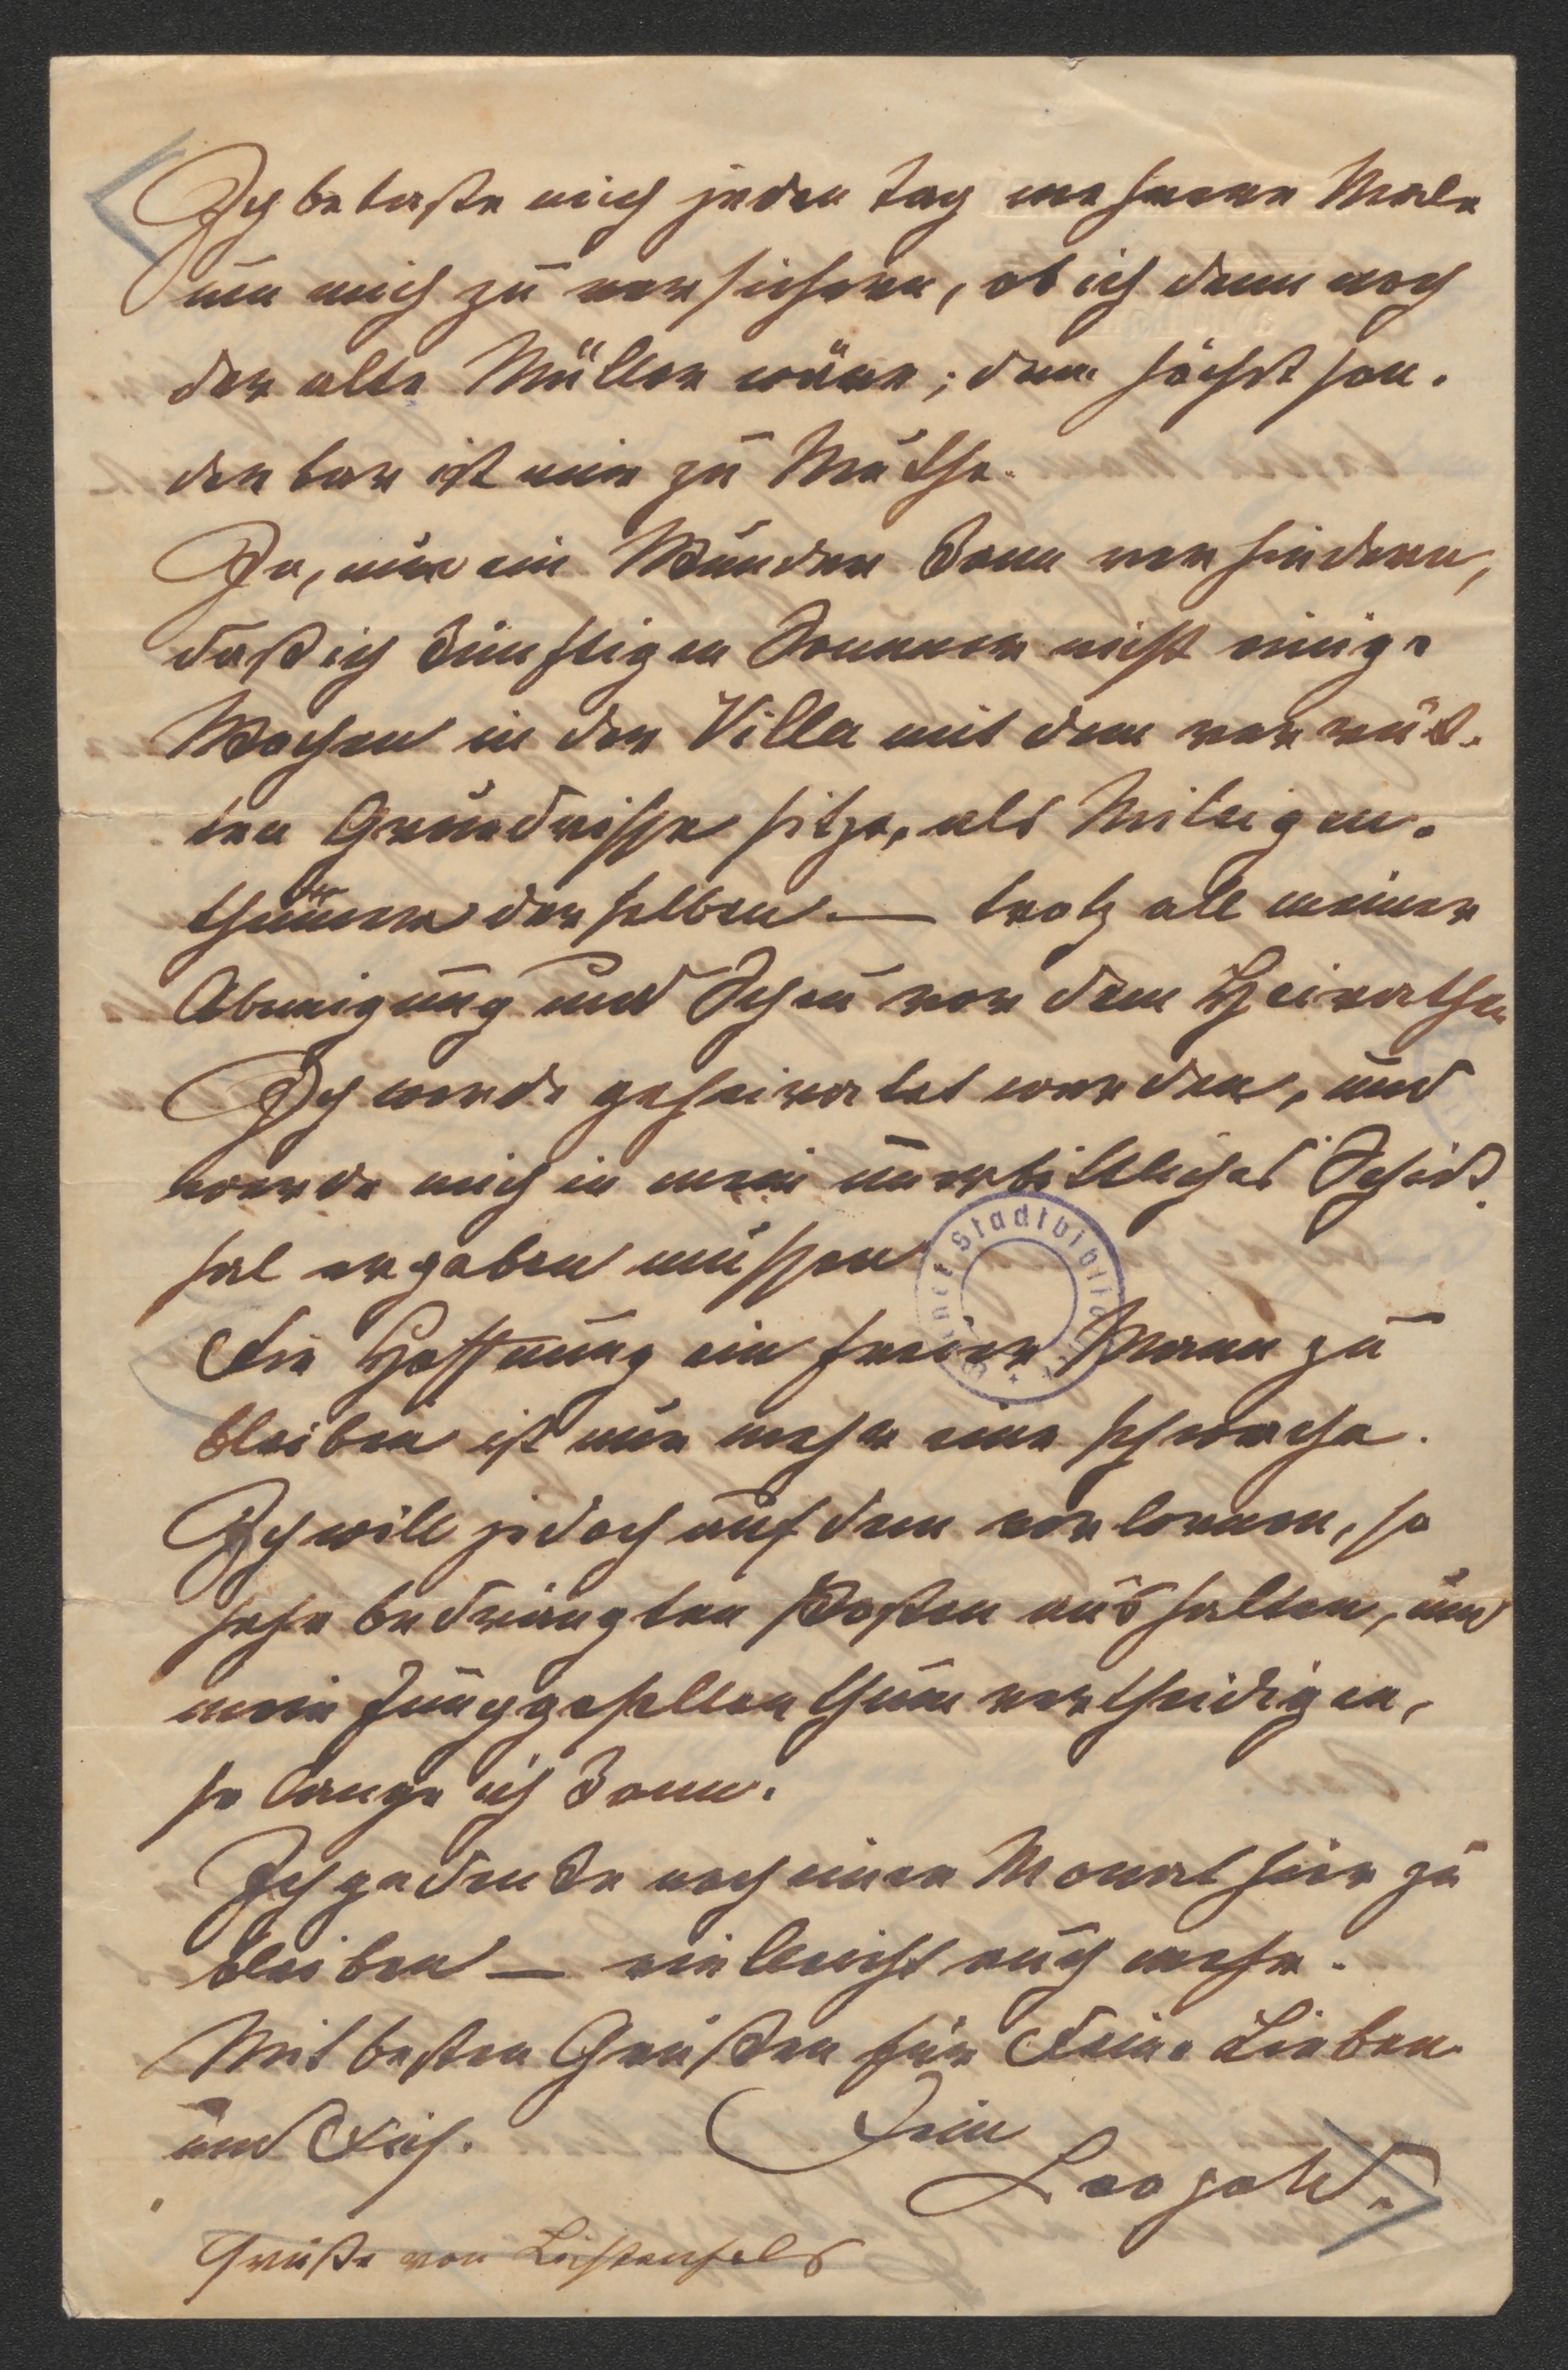 Ich betaste mich jeden Tag mehrere Male
um mich zu versichern, ob ich denn noch
der alte Müller wäre; denn höchst son-
derbar ist mir zu Muthe.
Ja, nur ein Wunder kann verhindern,
daß ich künftigen Sommer nicht einige
Wochen in der Villa mit dem verrück-
ten Grundrisse sitze, als Miteigen-
thümer derselben — trotz all meiner
Abneigung und Scheu vor dem Heirathen
Ich werde geheiratet werden, und
werde mich in mein unerbittliches Schick-
sal ergeben müssen
Die Hoffnung ein freier Mann zu
bleiben ist nur mehr eine schwache.
Ich will jedoch auf dem verlornen, so
sehr bedrängten Posten aushalten, und
mein Junggesellenthum vertheidigen,
so lange ich kann.
Ich gedenke noch einen Monat hier zu
bleiben — vielleicht auch mehr.
Mit besten Grüßen für Deine Lieben
und Dich. Dein
Leopold.
Grüße von Lichtenfels
Stadtbiblio